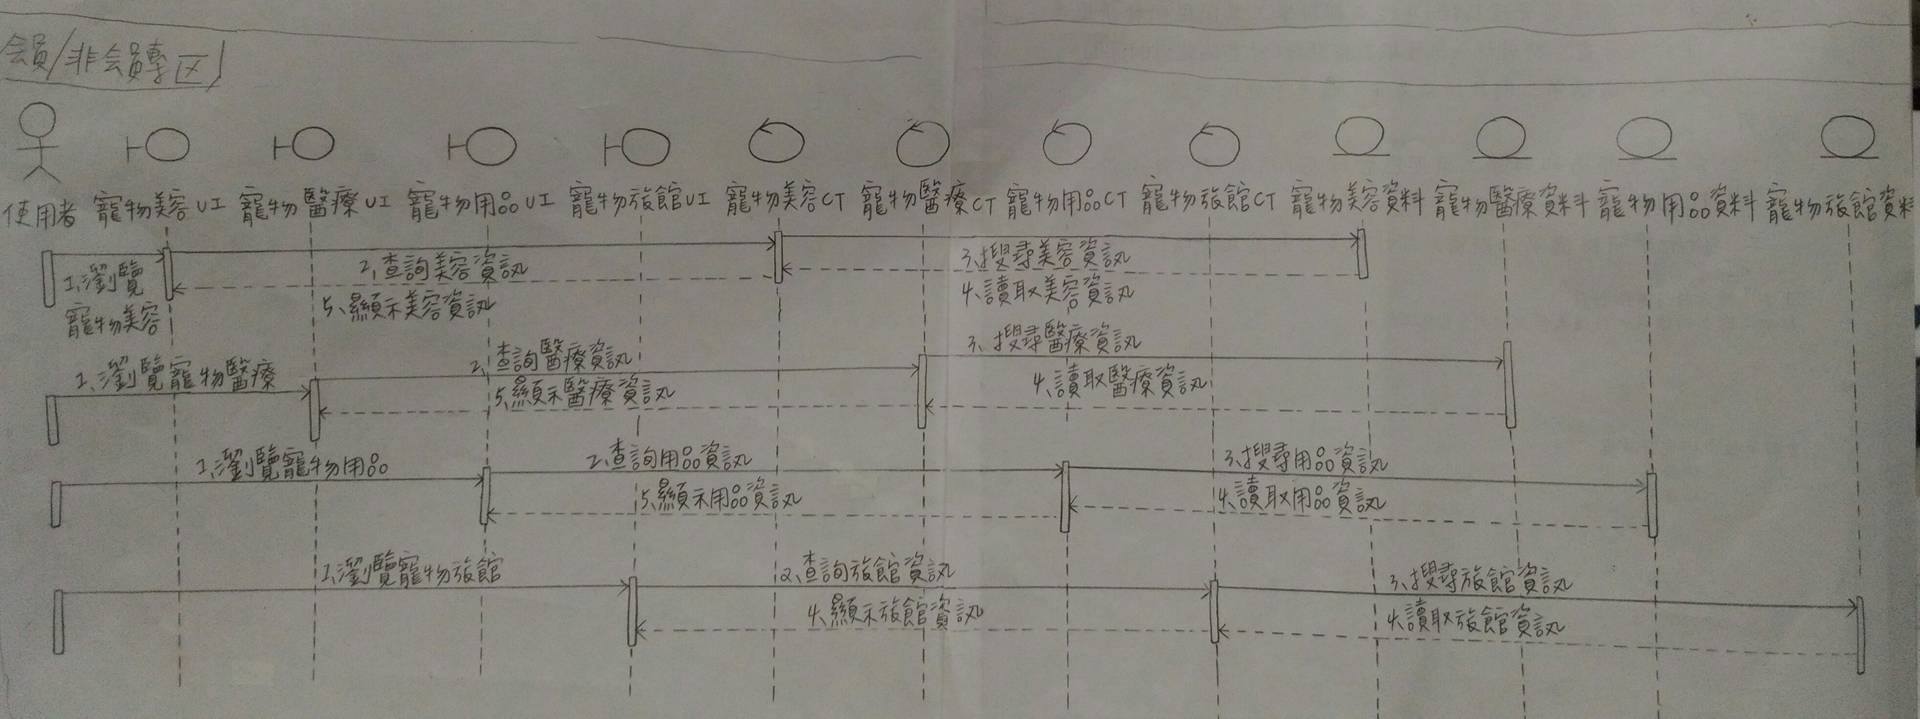 会員/非会員專区
使用者 寵物美容UI 寵物醫療UI 寵物用品UI 寵物旅館UI 寵物美容CT 寵物醫療CT 寵物用品CT 寵物旅館CT 寵物美容資料 寵物醫療資料 寵物用品資料 寵物旅館資料
1、瀏覽
寵物美容
2、查詢美容資訊
3、搜尋美容資訊
4、讀取美容資訊
5、顯示美容資訊
1、瀏覽寵物醫療
2、查詢醫療資訊
3、搜尋醫療資訊
4、讀取醫療資訊
5、顯示醫療資訊
1、瀏覽寵物用品
2、查詢用品資訊
3、搜尋用品資訊
4、讀取用品資訊
5、顯示用品資訊
1、瀏覽寵物旅館
2、查詢旅館資訊
3、搜尋旅館資訊
4、讀取旅館資訊
4、顯示旅館資訊